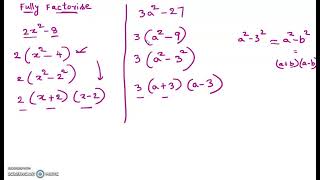 Fully Factorise
2x² - 8
2 (x² - 4)
2 (x² - 2²)
2 (x + 2) (x - 2)
3a² - 27
3 (a² - 9)
3 (a² - 3²)
3 (a + 3) (a - 3)
a² - 3² = a² - b²
= (a + b) (a - b)